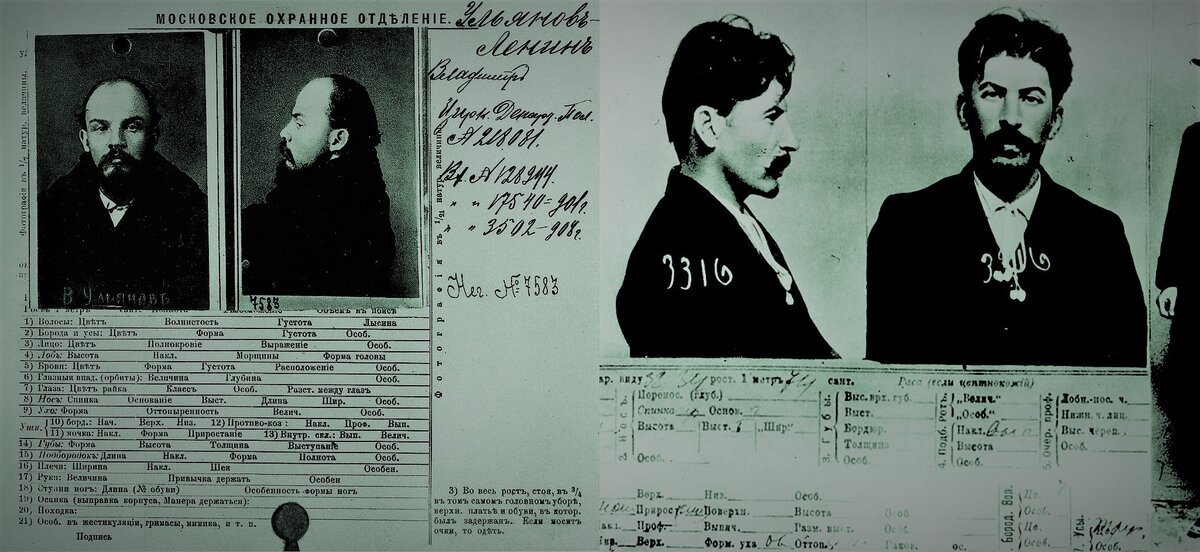 МОСКОВСКОЕ ОХРАННОЕ ОТДѢЛЕНІЕ.
Ульяновъ-
Ленинъ
Владимиръ
А 218081.
Вх А 128944.
" " 17540 =
" " 3502 –
Нег. № 7583
В. Ульяновъ
7583
Фотографія въ 1/7 натур. величины.
Фотографія въ 1/21 натур. величины
1) Волосы: Цвѣтъ Волнистость Густота Лысина
2) Борода и усы: Цвѣтъ Форма Густота Особ.
3) Лицо: Цвѣтъ Полнокровіе Выраженіе Особ.
4) Лобъ: Высота Накл. Морщины Форма головы
5) Брови: Цвѣтъ Форма Густота Расположеніе Особ.
6) Глазныя впад. (орбиты): Величина Глубина Особ.
7) Глаза: Цвѣтъ райка Классъ Особ. Разст. между глазъ
8) Носъ: Спинка Основаніе Выст. Длина Шир. Особ.
9) Ухо: Форма Оттопыренность Велич. Особ.
10) борд.: Нач. Верх. Низ. 12) Противо-коз: Накл. Проф. Вып.
11) мочка: Накл. Форма Приростаніе 13) Внутр. скл.: Вып. Велич.
14) Губы: Форма Высота Толщина Выступаніе Особ.
15) Подбородокъ: Длина Накл. Форма Полнота Особ.
16) Плечи: Ширина Накл. Шея Особен.
17) Руки: Величина Привычка держать Особен
18) Ступни ногъ: Длина (№ обуви) Особенность формы ногъ
19) Осанка (выправка корпуса, Манера держаться):
20) Походка:
21) Особ. въ жестикуляціи, гримасы, мимика, и т. п.
Подпись
3) Во весь ростъ, стоя, въ 3/4
въ томъ самомъ головномъ уборѣ,
верхн. платьѣ и обуви, въ котор.
былъ задержанъ. Если носитъ
очки, то одѣть.
3316
рост. 1 метръ 74 сант. Раса (если цвѣтнокожій)
Перенос. (глуб.) Выс. врх. губ. „Велич." Лобн.-нос. ч.
Спинка Основ. Выст. „Особ." Нижн. ч. лиц.
Высота Выст. „Шир" Бордюр. Накл. Выс. череп.
Толщина Высота Особ.
Особ. Особ. Особ.
2. Носъ. 3. Губы. 4. Подб. 5. Очер. проф.
Верх. Низ. Особ.
Поверхн. Высота Особ.
Проф. Выпяч. Разм. выст. Особ.
Верх. Форм. уха Оттоп.
Усы. Цв.
Особ.